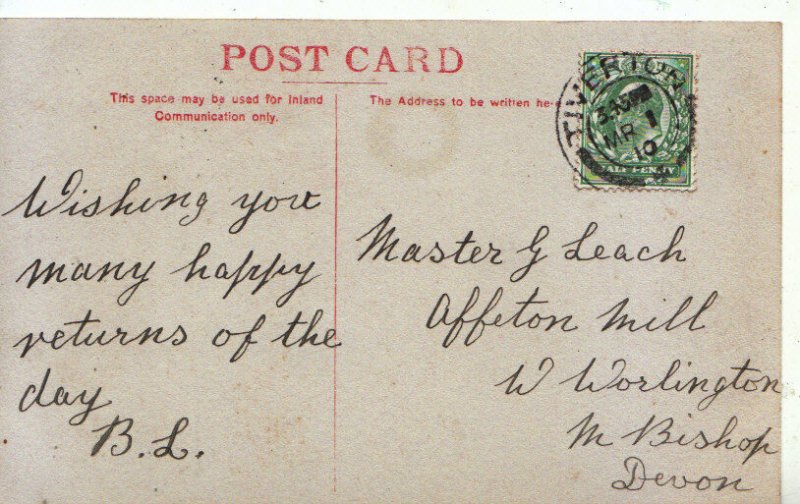 POST CARD
This space may be used for Inland
Communication only.
The Address to be written he-
TIVERTON
MR 1
10
HALFPENNY
Wishing you
many happy
returns of the
day
B.L.
Master G Leach
Affeton Mill
W Worlington
M Bishop
Devon